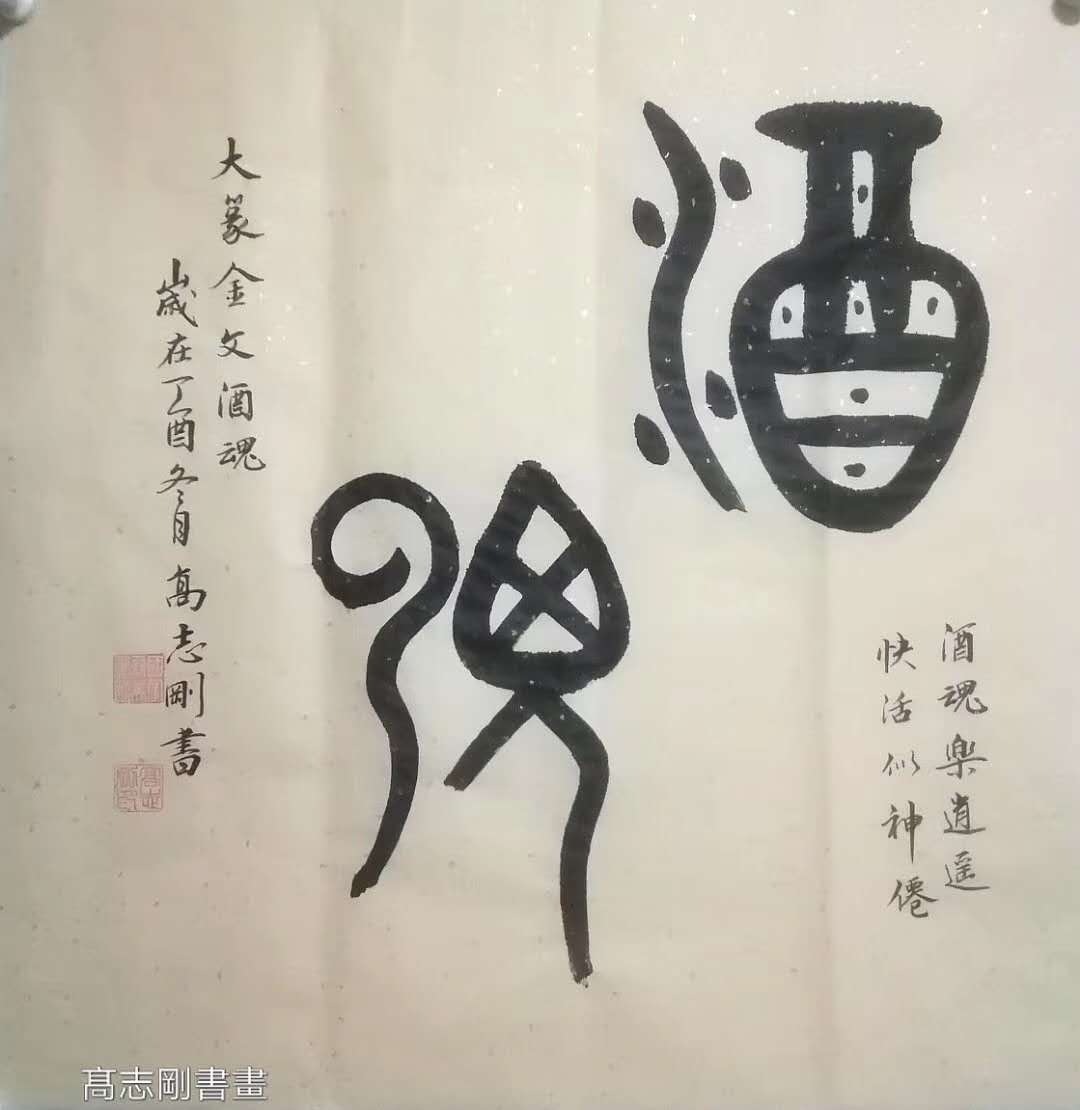 酒魂
酒魂樂逍遥
快活似神僊
大篆金文酒魂
歲在丁酉冬月髙志剛書
髙志剛書畫